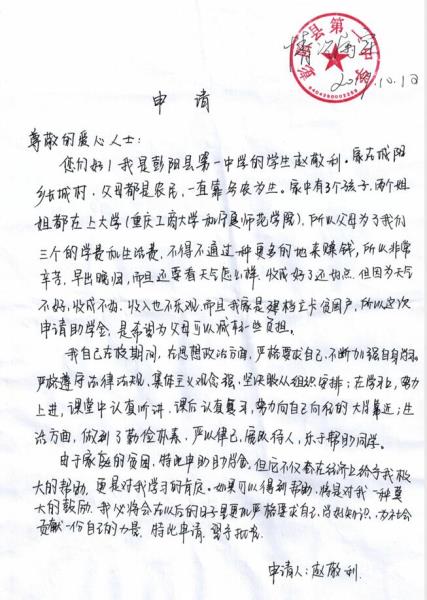 彭阳县第一中学
情况属实
2019.10.18
申 请
尊敬的爱心人士：
您们好！我是彭阳县第一中学的学生赵敬利。家在城阳
乡长城村，父母都是农民，一直靠务农为生。家中有3个孩子，两个姐
姐都在上大学(重庆工商大学和宁夏师范学院)，所以父母为了我们
三个的学费和生活费，不得不通过种更多的地来赚钱，所以非常
辛苦，早出晚归，而且还要看天气怎么样，收成好了还好点，但因为天气
不好，收成不好，收入也不乐观，而且我家是建档立卡贫困户，所以这次
申请助学金，是希望为父母可以减轻一些负担。
我自己在校期间，在思想政治方面，严格要求自己，不断加强自身学习，
严格遵守法律法规，集体主义观念强，坚决服从组织安排；在学习上，努力
上进，课堂中认真听讲，课后认真复习，努力向自己向往的大学靠近；生
活方面，做到了勤俭朴素，严以律己，宽以待人，乐于帮助同学。
由于家庭的贫困，特此申助助学金，但它不仅会在经济上给予我极
大的帮助，更是对我学习的肯定。如果可以得到帮助，将是对我一种莫
大的鼓励，我必将会在以后的日子里更加严格要求自己，学好知识，为社会
贡献一份自己的力量，特此申请，望予批准。
申请人：赵敬利